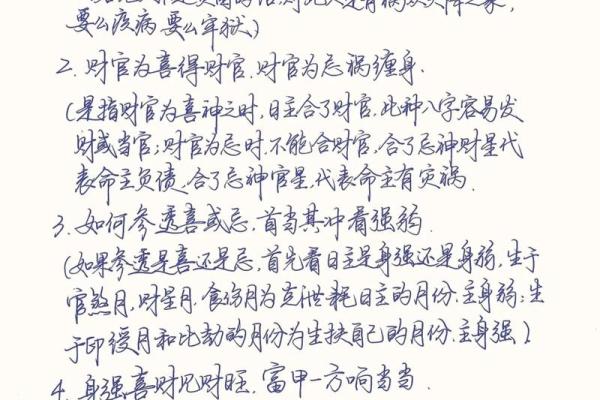 要么疾病要么牢狱)
2. 财官为喜得财官.财官为忌祸缠身.
(是指财官为喜神之时,日主合了财官.此种八字容易发
财或当官;财官为忌时.不能合财官,合了忌神财星代
表命主负债,合了忌神官星,代表命主有灾祸.
3. 如何参透喜或忌,首当其冲看强弱.
(如果参透是喜还是忌,首先看日主是身强还是身弱,生于
官煞月,财星月.食伤月为克泄耗日主的月份.主身弱;生
于印绶月和比劫的月份为生扶自己的月份.主身强)
4. 身强喜财见财旺,富甲一方响当当.